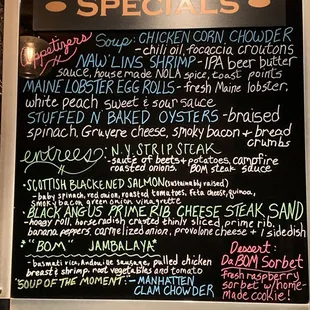 SPECIALS
Appetizers
Soup: CHICKEN CORN CHOWDER
- chili oil, focaccia croutons
NAW'LINS SHRIMP - IPA beer butter
sauce, house made NOLA spice, toast points
MAINE LOBSTER EGG ROLLS - fresh Maine lobster,
white peach sweet & sour sauce
STUFFED N' BAKED OYSTERS - braised
spinach, Gruyere cheese, smoky bacon & bread
crumbs
entrees:
• N.Y. STRIP STEAK
- saute of beets + potatoes, campfire
roasted onions. "BOM" steak sauce
• SCOTTISH BLACKENED SALMON (sustainably raised)
- baby spinach, red onion, roasted tomatoes, feta cheese, quinoa,
smoky bacon, green onion vinaigrette
• BLACK ANGUS PRIME RIB CHEESE STEAK SAND
- hoagy roll, horse radish crusted thinly sliced prime rib,
banana peppers, carmelized onion, provolone cheese + 1 side dish
• "BOM" JAMBALAYA
- basmati rice, Andouille sausage, pulled chicken
breast & shrimp, root vegetables and tomato
"SOUP OF THE MOMENT": - MANHATTEN
CLAM CHOWDER
Dessert:
Da BOM Sorbet
Fresh raspberry
sorbet w/home-
made cookie!